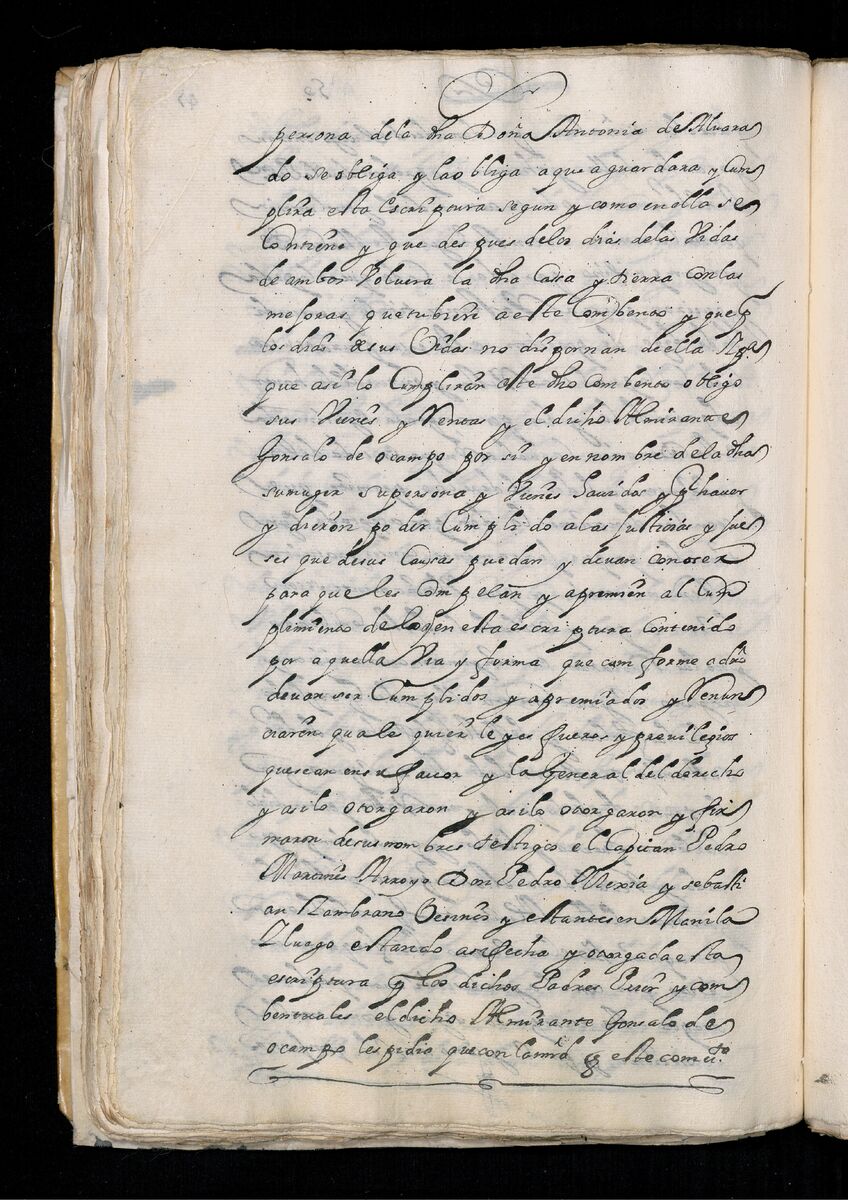 persona dela dha Doña Antonia de Alvara
do se obliga y la obliga a que aguardara y Cum
plira esta Escriptura segun y como en ella se
Contiene y que despues delos dias delas Vidas
de ambos Volvera la dha Casa y tierra con las
mejoras que tubiere a este Combento y que p
los dias de sus Vidas no dispornan de ella
que asi lo Cumpliran este dho combento obligo
sus Vienes y Rentas y el dicho Almirante
Gonsalo de ocampo por si y en nombre dela dha
su muger su persona y Vienes havidos y Pr haver
y dieron poder Cumplido a las Justicias y Jue
ses que de sus Causas puedan y devan conoser
para que les Compelan y apremien al Cum
plimiento de lo en esta escriptura Contenido
por aquella Via y forma que com forme a dro
devan ser Cumplidos y apremiados y Renun
ciaron quale quier leyes fueros y previlegios
que sean en su favor y la General del derecho
y asi lo otorgaron y asi lo otorgaron y fir
maron de sus nombres testigos el Capitan Pedro
Martines Arroyo Don Pedro Mexia y sebasti
an Zambrano Vesinos y estantes en Manila
Y luego estando asi fecha y otorgada esta
escriptura p los dichos Padres Prior y com
bentuales el dicho Almirante Gonsalo de
ocampo les pidio que con la md q este comuto